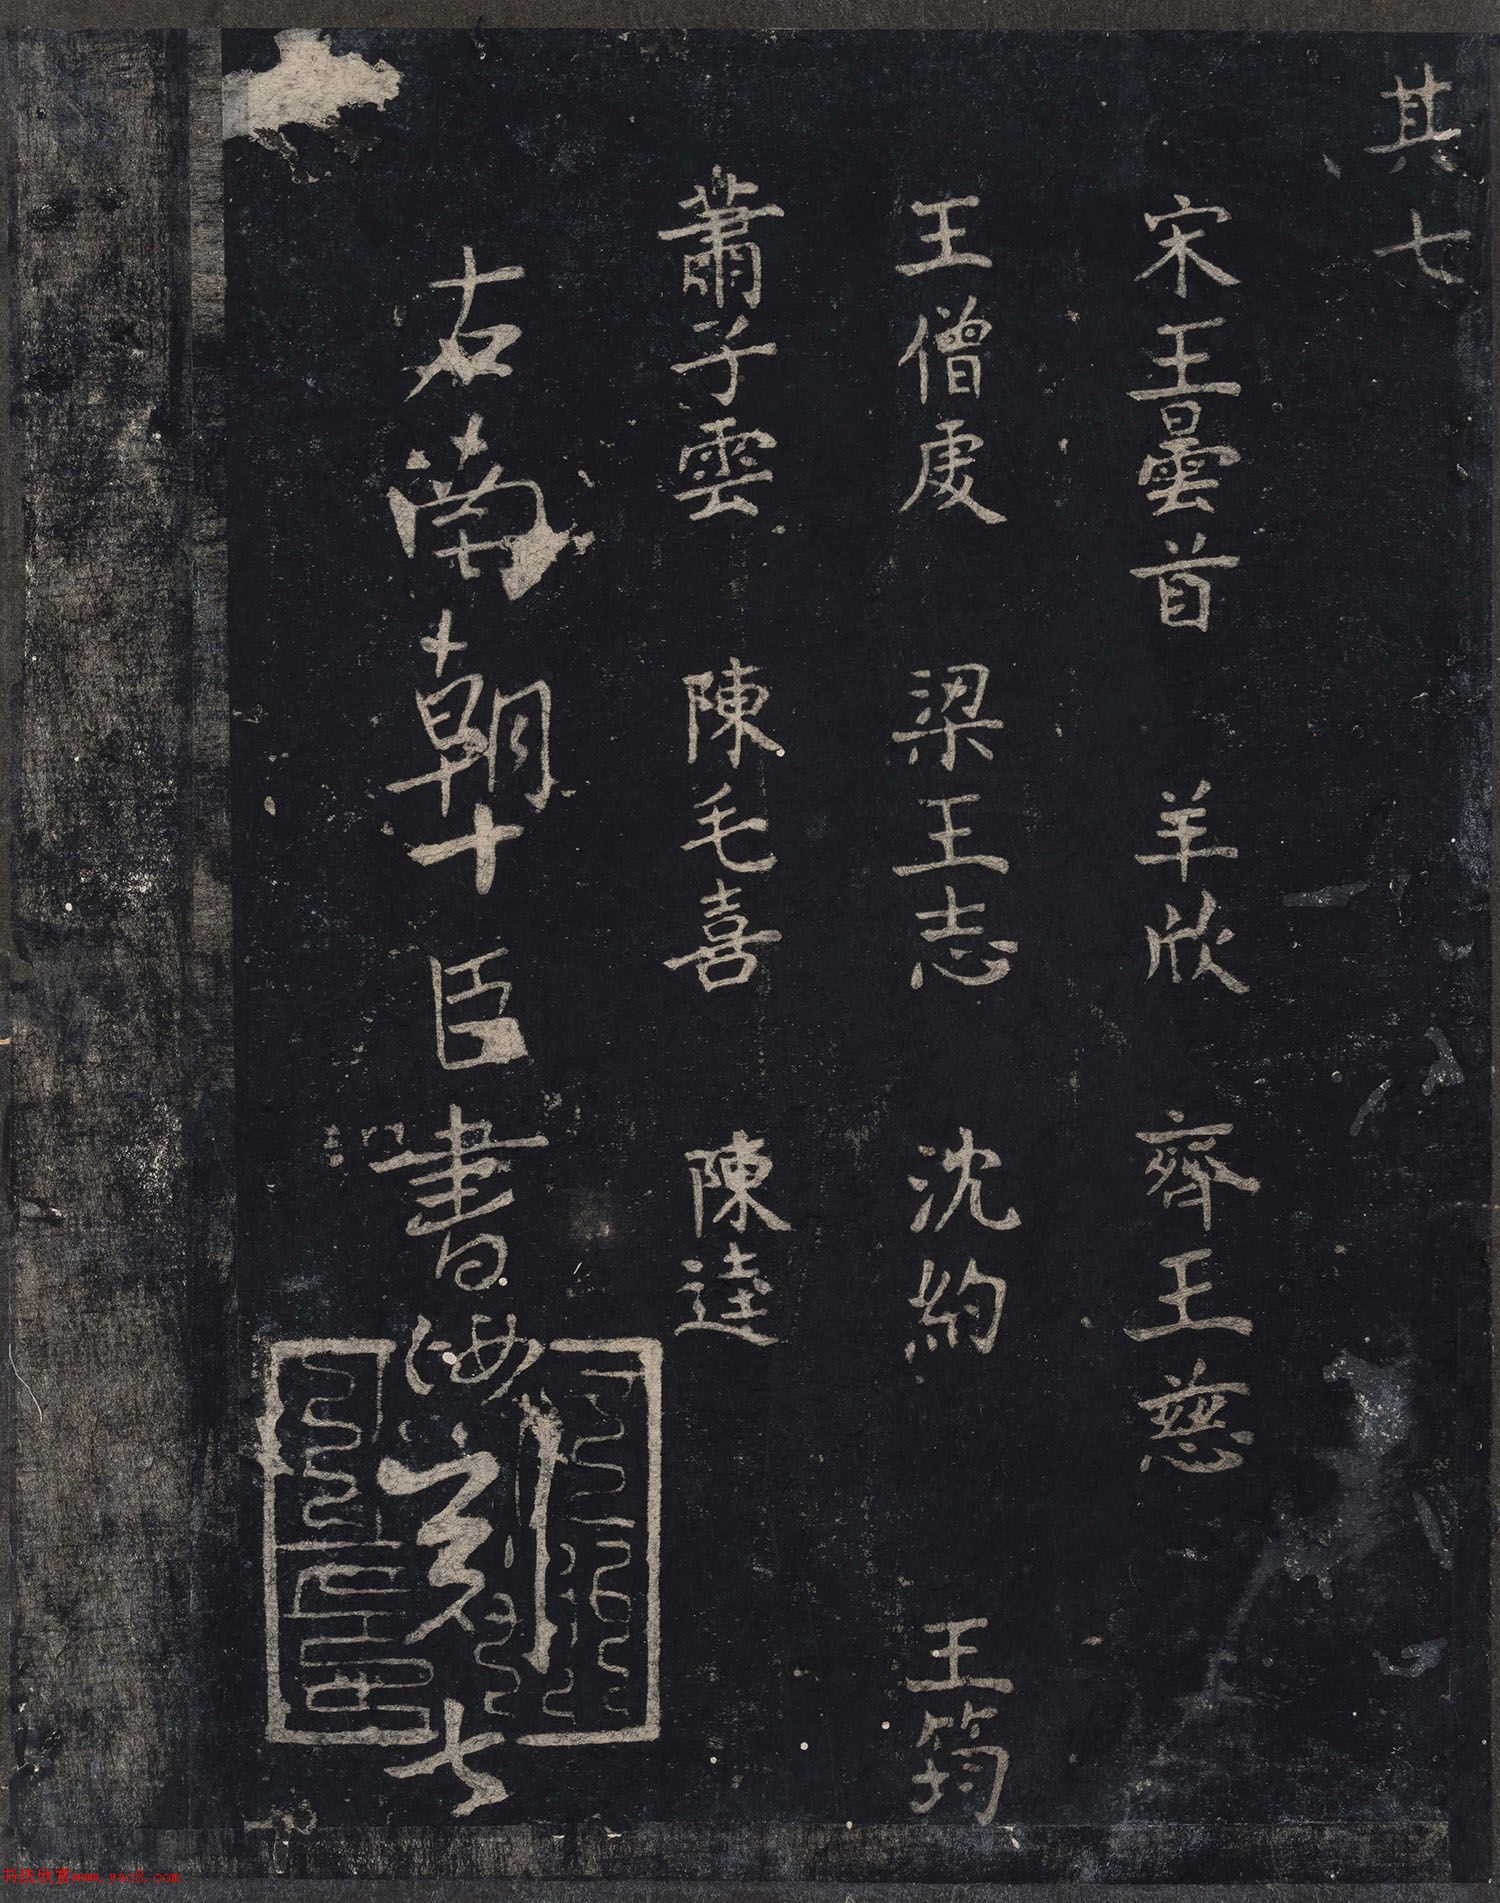 其七
宋王曇首 羊欣 齊王慈
王僧虔 梁王志 沈約 王筠
蕭子雲 陳毛喜 陳逵
右南朝十臣書海刻七
书法欣赏www.yac8.com